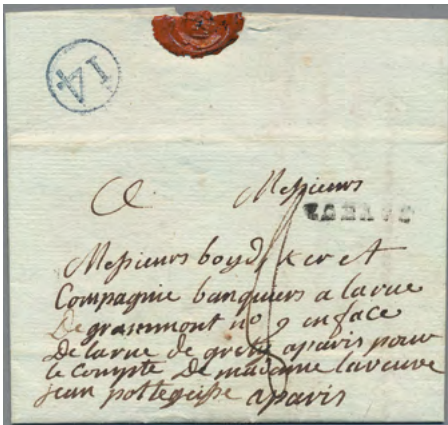 14
A Messieurs
Messieurs boyd, ker et
Compagnie banquiers a larue
De grammont no 9 en face
De larue de gretry aparis pour
le Compte De madame laveuve
jean aparis